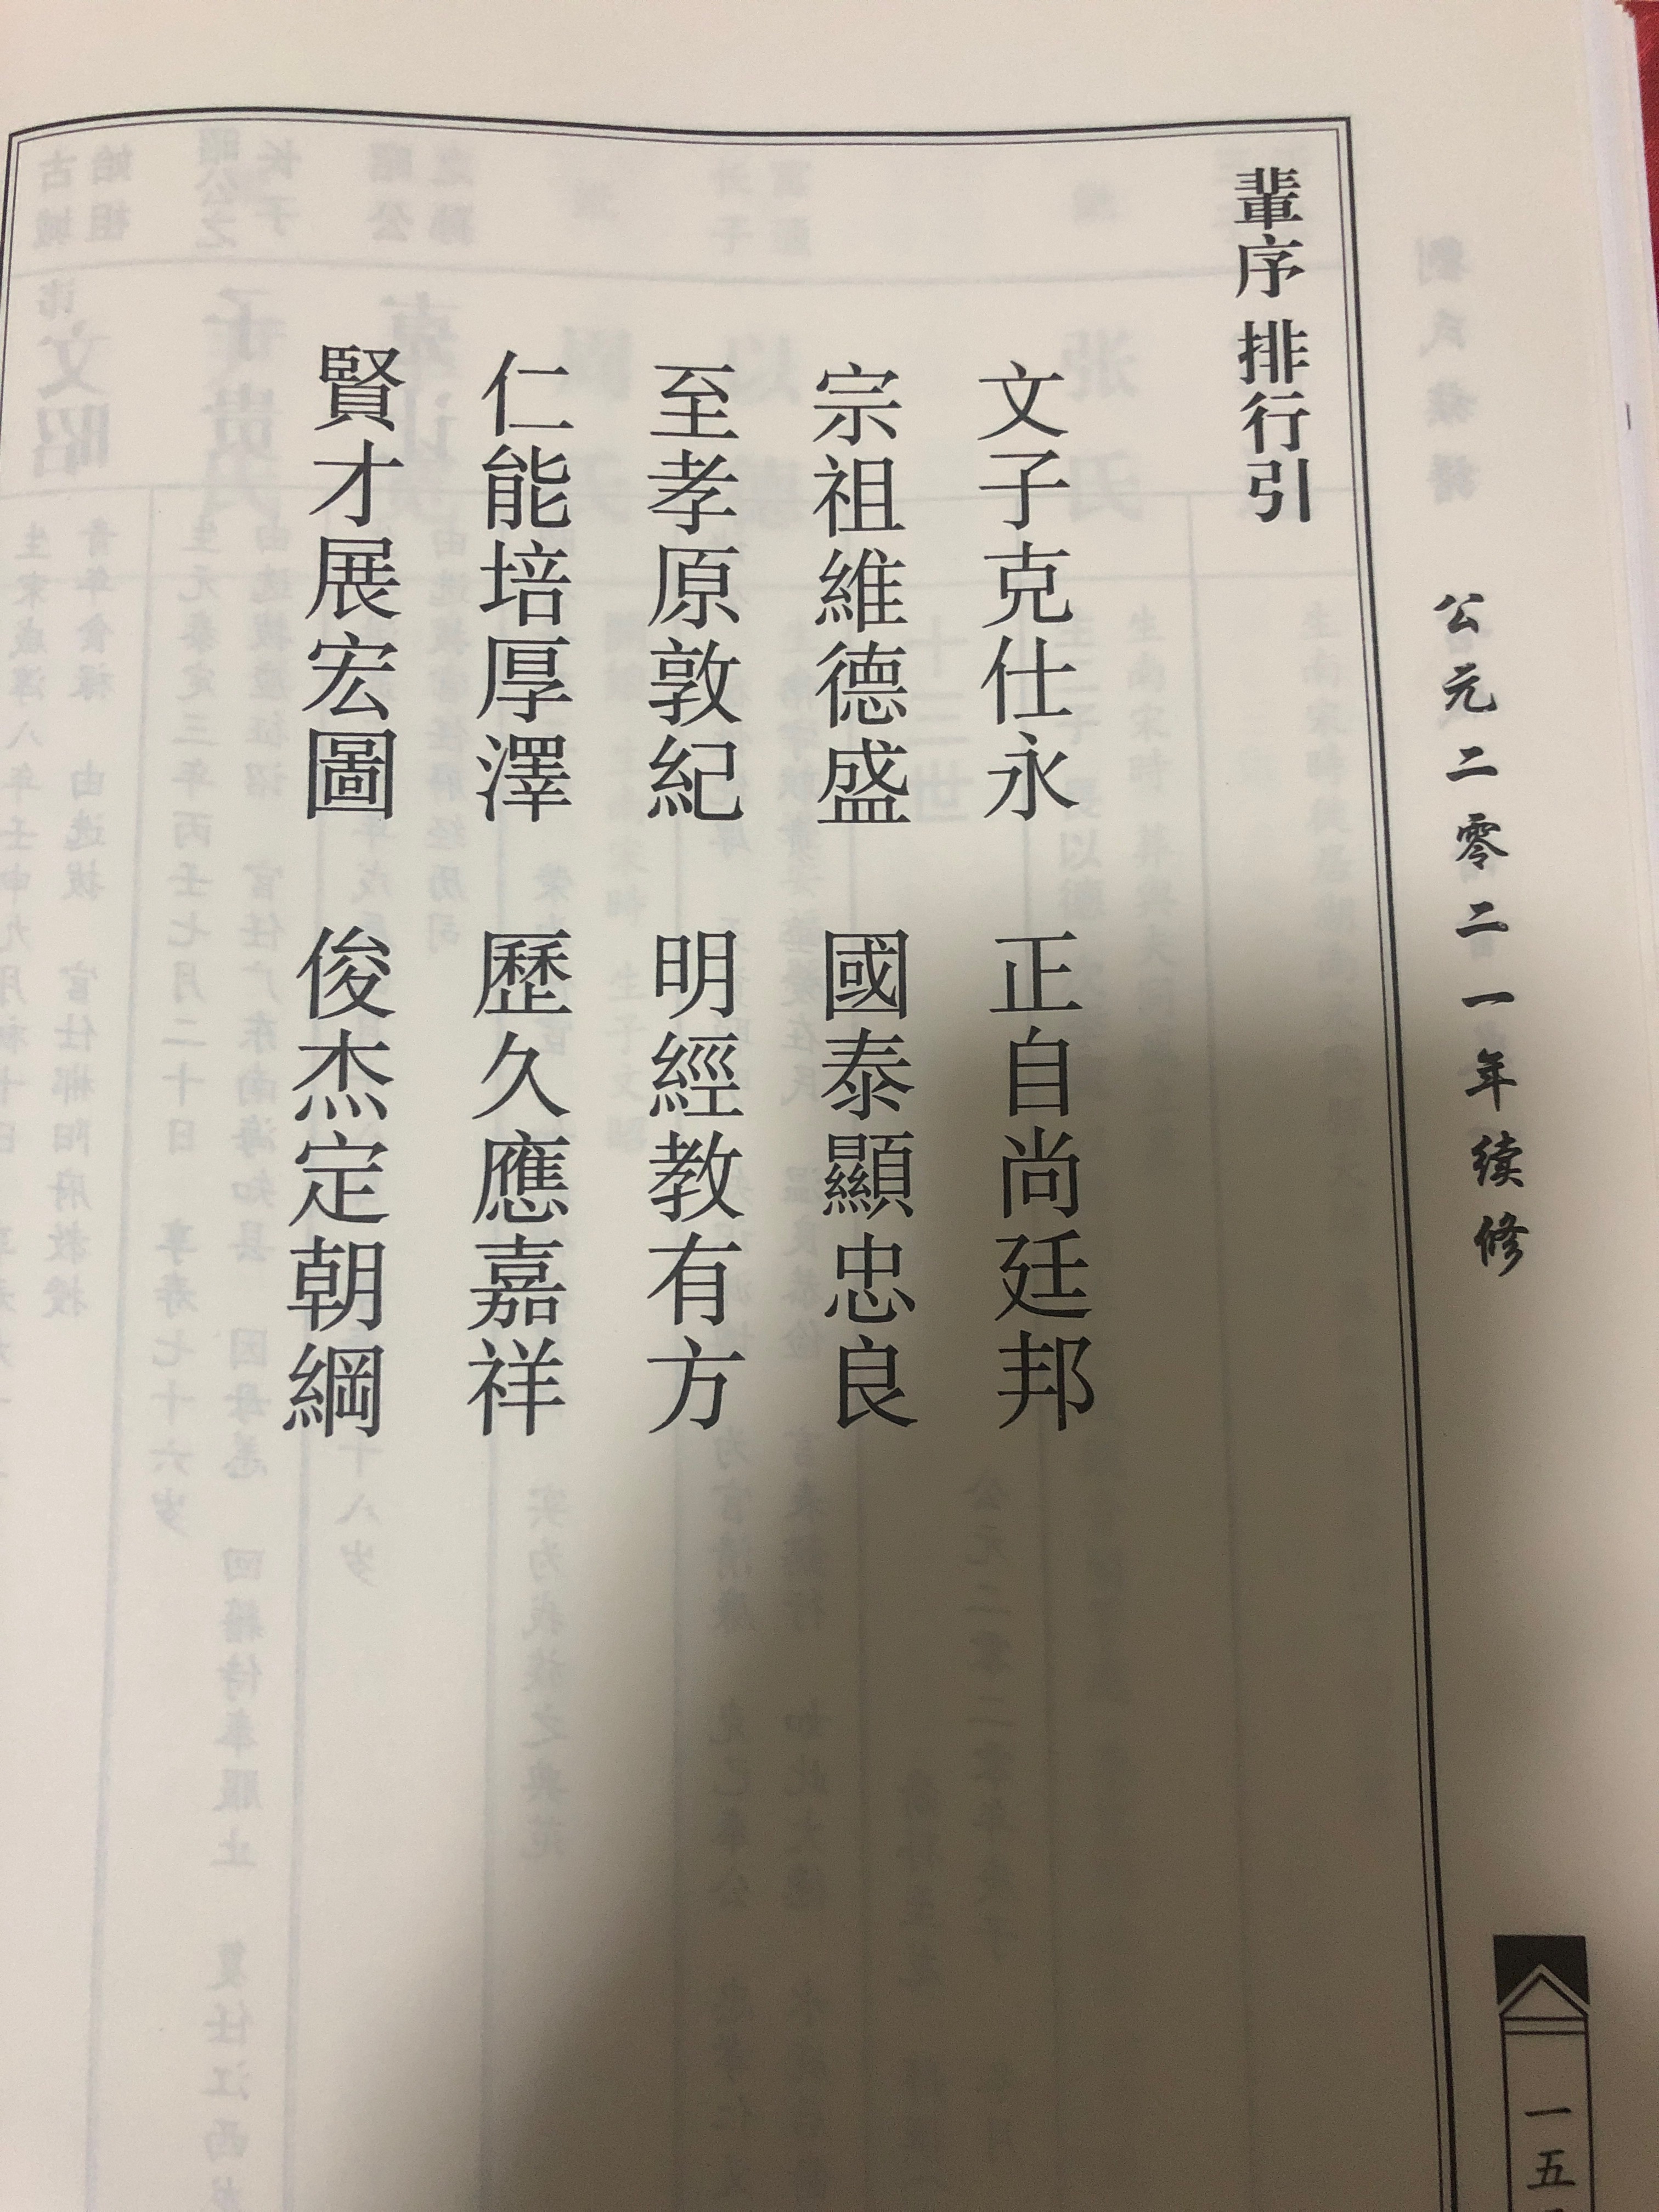 公元二零二一年续修
輩序排行引
文子克仕永 正自尚廷邦
宗祖維德盛 國泰顯忠良
至孝原敦紀 明經教有方
仁能培厚澤 歷久應嘉祥
賢才展宏圖 俊杰定朝綱
一五